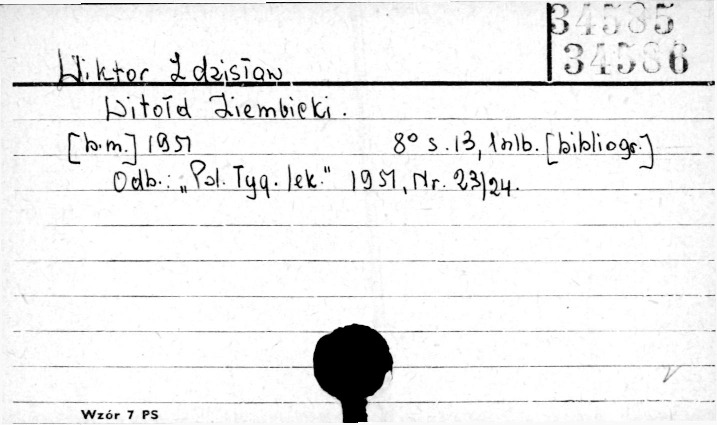 34585
34586
Wiktor Zdzisław
Witołd Ziembicki.
[b.m.] 1951 8° s. 13, 1nlb. [bibliogr.]
Odb.: „Pol. Tyg. lek." 1951, Nr. 23/24.
Wzór 7 PS